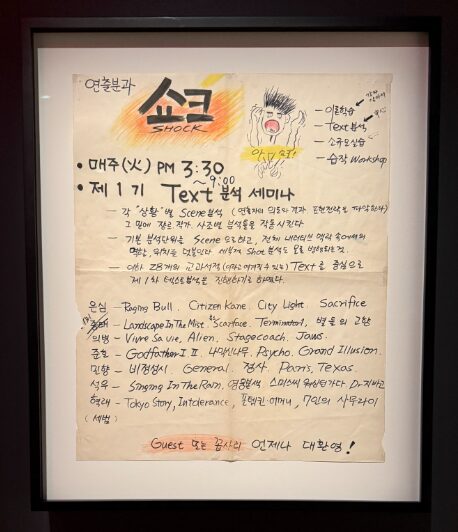 연출분과
쇼크
SHOCK
- 이론학습
- Text분석
- 소규모실습
- 습작 Workshop
• 매주(火) PM 3:30
~ 9:00
• 제1기 Text 분석 세미나
- 각 "상황"별 Scene분석 (연출자의 의도와 결과 표현전략을 파악한다)
- 기본 분석단위는 Scene 으로하고, 전체 내러티브 맥락 속에서의
Shot 분석도
- 이하 28개의 교과서적 (이라고 여겨질 수 있는) Text를 중심으로
제1차 텍스트분석을 진행하기로 하였다.
은심 - Raging Bull. Citizen Kane. City Light Sacrifice
- Landscape In The Mist. Scarface. Terminator1, 별들의 고향
의범 - Vivre Sa vie, Alien. Stagecoach. Jaws.
준호 - Godfather I II. Psycho. Grand Illusion.
민향 - 비정성시. General. 정사. Paris, Texas.
석우 - Singing In The Rain, 영웅본색, 스미스씨 워싱턴가다. Dr.지바고
형래 - Tokyo Story, Intolerance, 포템킨, 어머니, 7인의 사무라이
(세범)
Guest 또는 꼽사리 언제나 대환영!